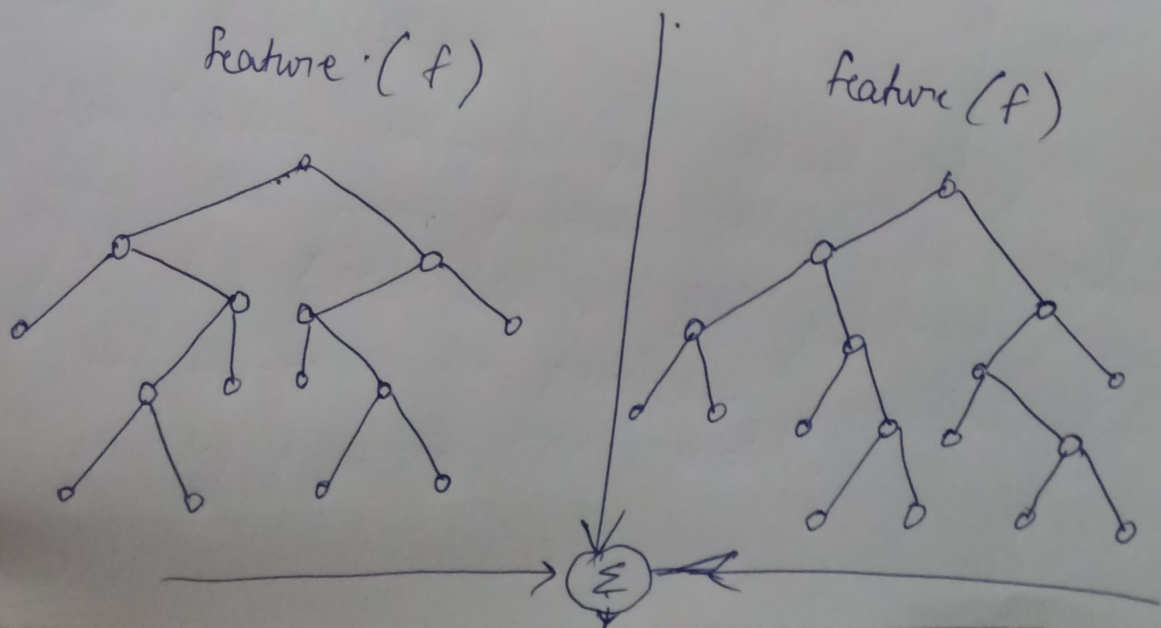 feature (f)
feature (f)
Σ